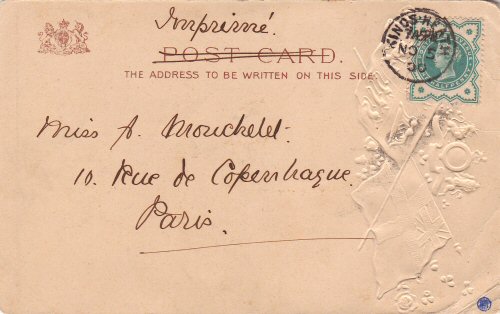 Imprimé.
POST CARD.
THE ADDRESS TO BE WRITTEN ON THIS SIDE.
KINGS-HEATH
NO 5
Miss A. Mouchelet.
10. Rue de Copenhague.
Paris.